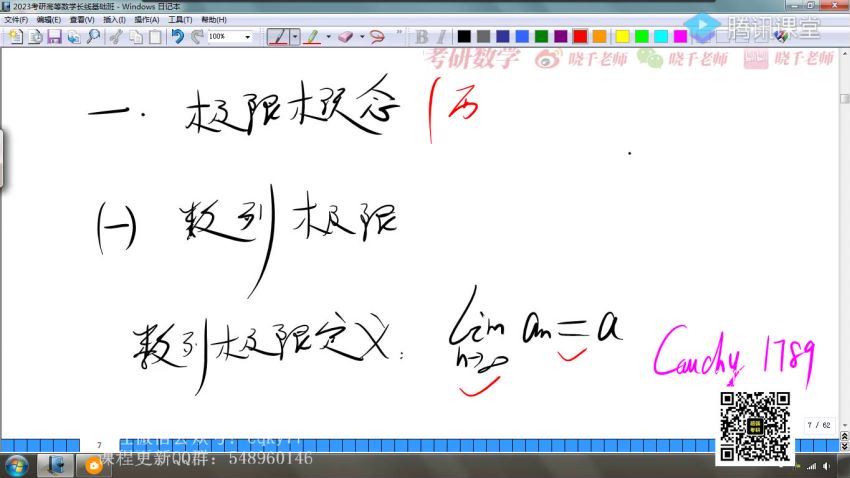 2023考研高等数学长线基础班 - Windows 日记本
文件(F) 编辑(E) 查看(V) 插入(I) 操作(A) 工具(T) 帮助(H)
腾讯课堂
100% B I
考研数学 晓千老师 晓千老师 晓千老师
一. 极限概念 (
(一) 数列极限
数列极限定义: lim n→∞ an = a
Cauchy 1789
7 / 62
7
课程更新QQ群: 548960146